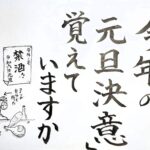 今年の
元旦決意」
覚えて
いますか
禁酒